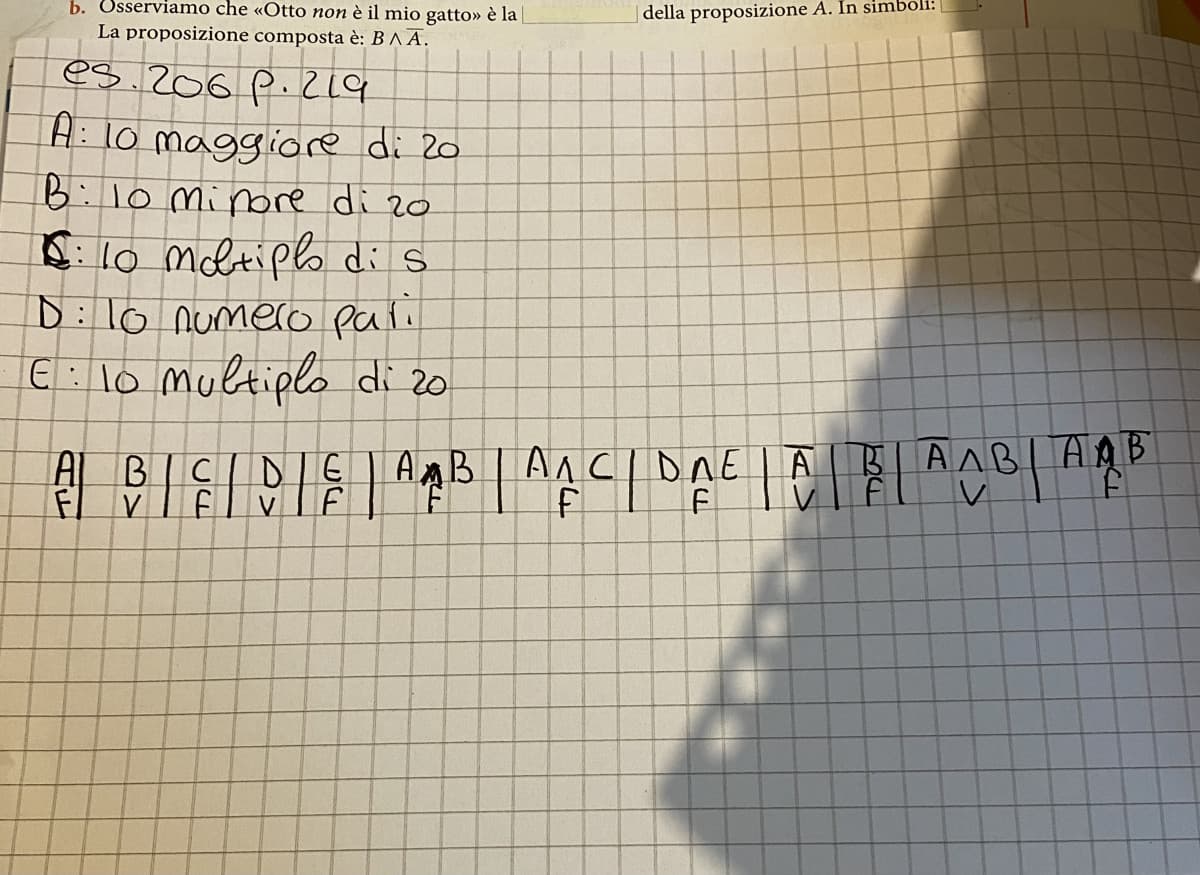 b. Osserviamo che «Otto non è il mio gatto» è la della proposizione A. In simboli: .
La proposizione composta è: B ∧ A̅.
es. 206 p. 219
A: 10 maggiore di 20
B: 10 minore di 20
C: 10 moltiplo di 5
D: 10 numero pari
E: 10 multiplo di 20
A| B | C | D | E | A∧B | A∧C | D∧E | A̅ | B̅ | A̅∧B | A̅∧B̅
F| V | F | V | F | F | F | F | V | F | V | F